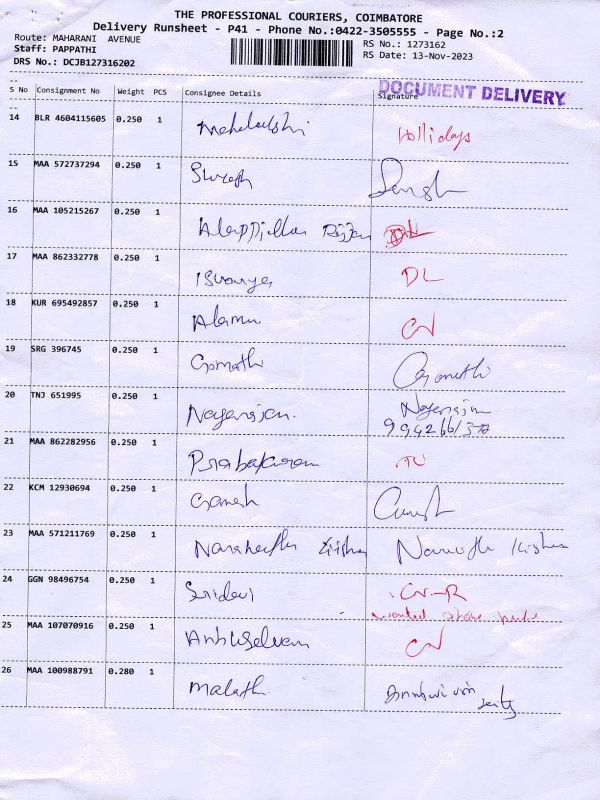 THE PROFESSIONAL COURIERS, COIMBATORE
Delivery Runsheet - P41 - Phone No.:0422-3505555 - Page No.:2
Route: MAHARANI AVENUE
RS No.: 1273162
Staff: PAPPATHI
RS Date: 13-Nov-2023
DRS No.: DCJB127316202
DOCUMENT DELIVERY
S No Consignment No Weight PCS Consignee Details Signature
14 BLR 4604115605 0.250 1 Mahalakshi Hollidays
15 MAA 572737294 0.250 1 Suresh
16 MAA 105215267 0.250 1 DL
17 MAA 862332778 0.250 1 Iswarya DL
18 KUR 695492857 0.250 1 Alamu CN
19 SRG 396745 0.250 1 Gomathi Gomathi
20 TNJ 651995 0.250 1 Nagarajan. Nagarajan
21 MAA 862282956 0.250 1 Prabakaran
22 KCM 12930694 0.250 1 Ganesh
23 MAA 571211769 0.250 1
24 GGN 98496754 0.250 1 Sridevi CN-R
25 MAA 107070916 0.250 1 Anbuselvam CN
26 MAA 100988791 0.280 1 Malathi